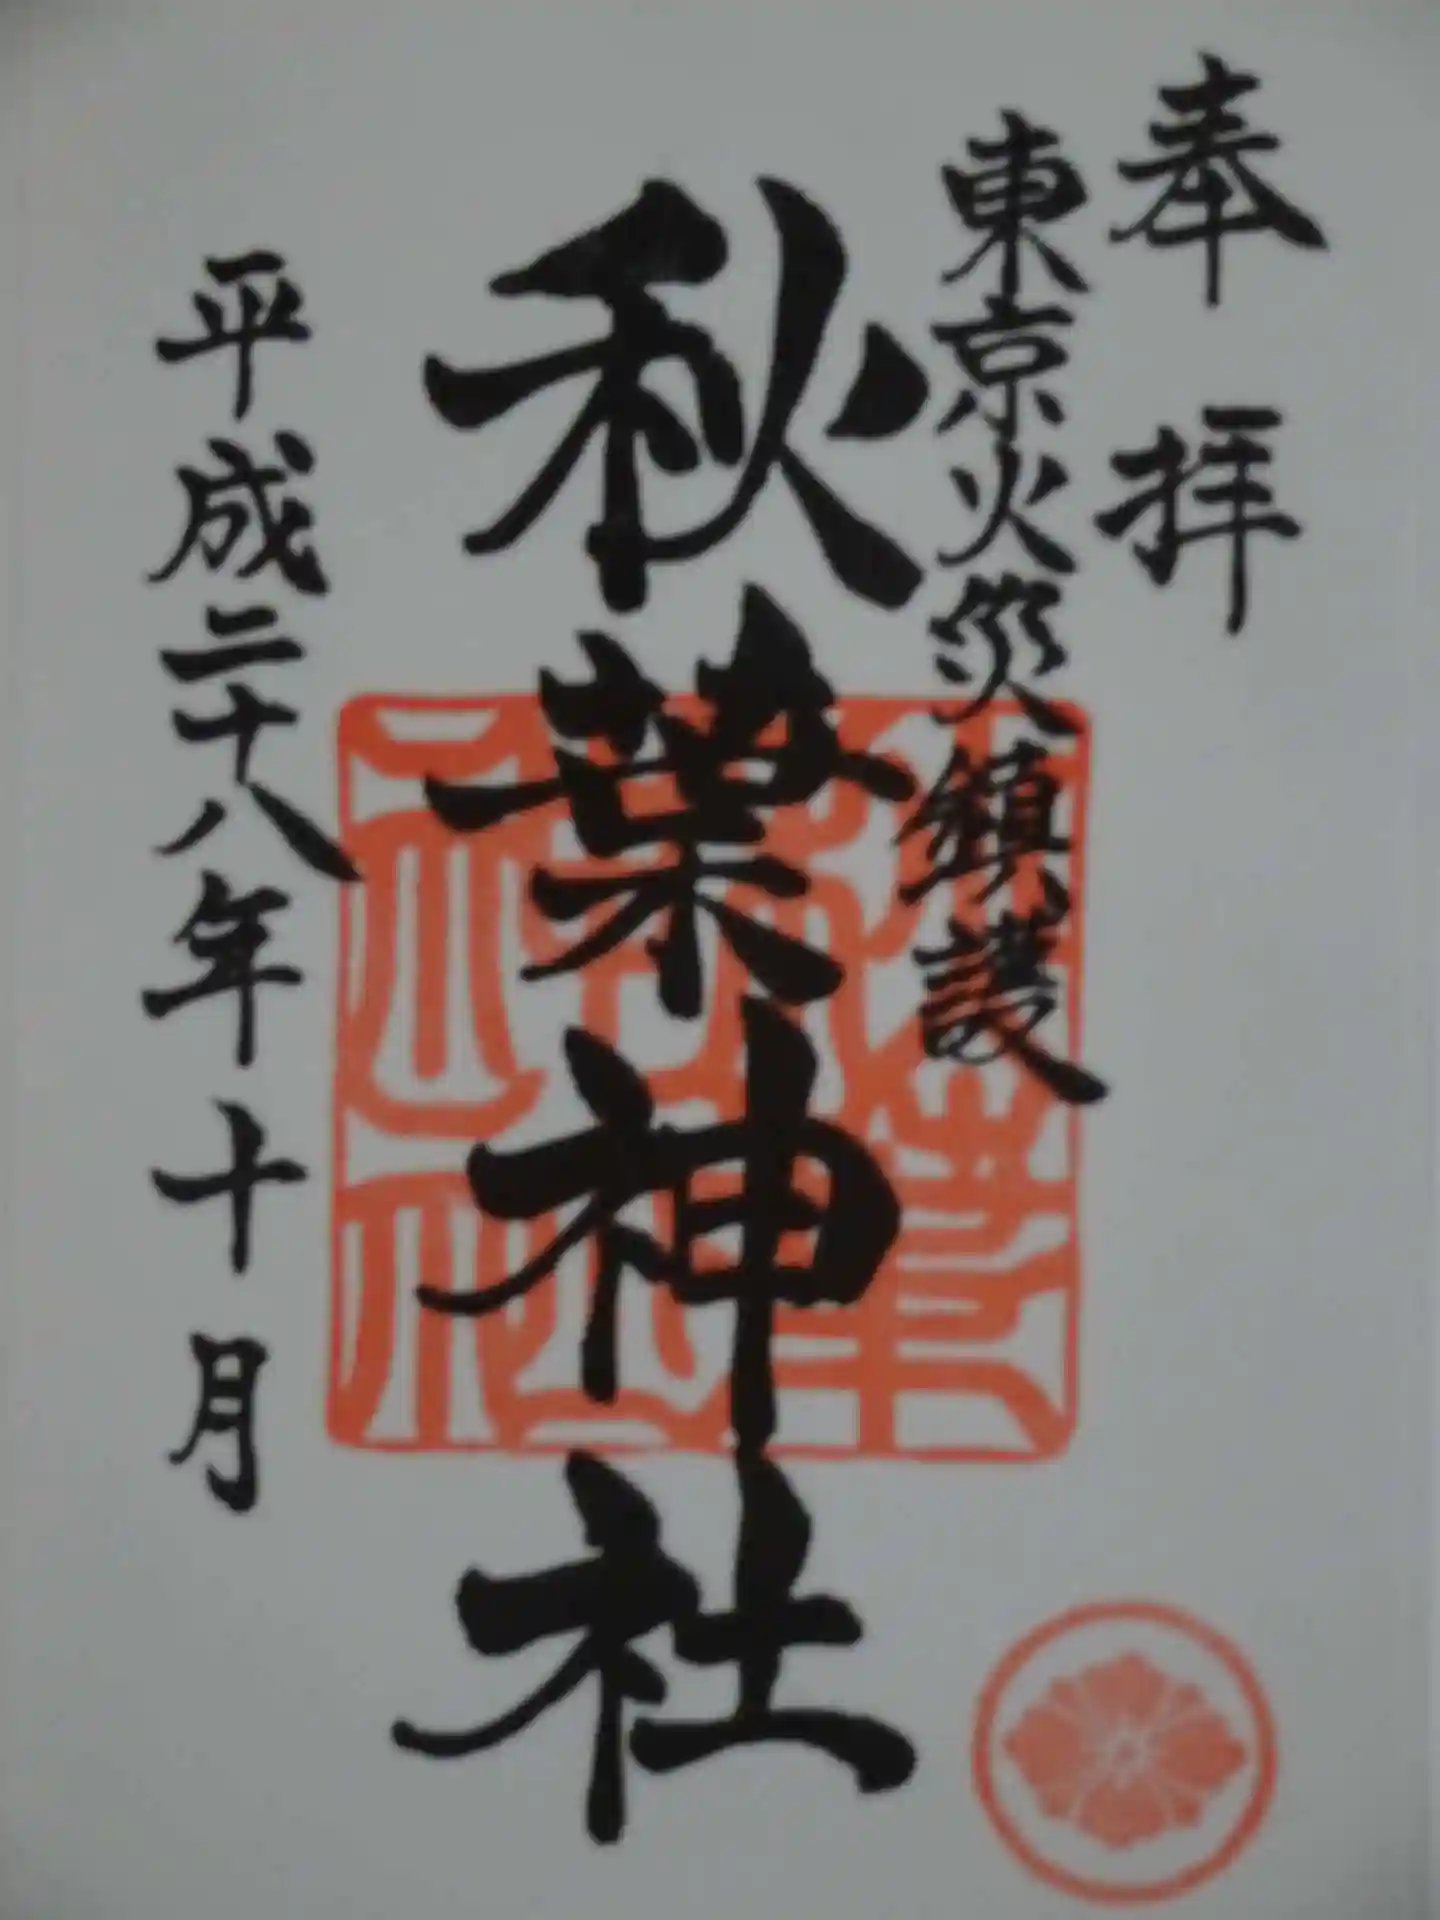 奉拝
東京火災鎮護
秋葉神社
平成二十八年十月